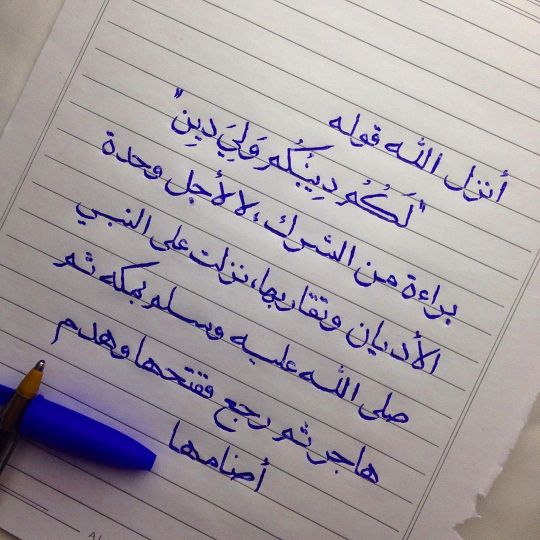 أنزل الله قوله
"لَكُمْ دِينُكُمْ وَلِيَ دِينِ"
براءة من الشرك، لا لأجل وحدة
الأديان وتقاربها، نزلت على النبي
صلى الله عليه وسلم بمكه ثم
هاجر ثم رجع ففتحها وهدم
أصنامها